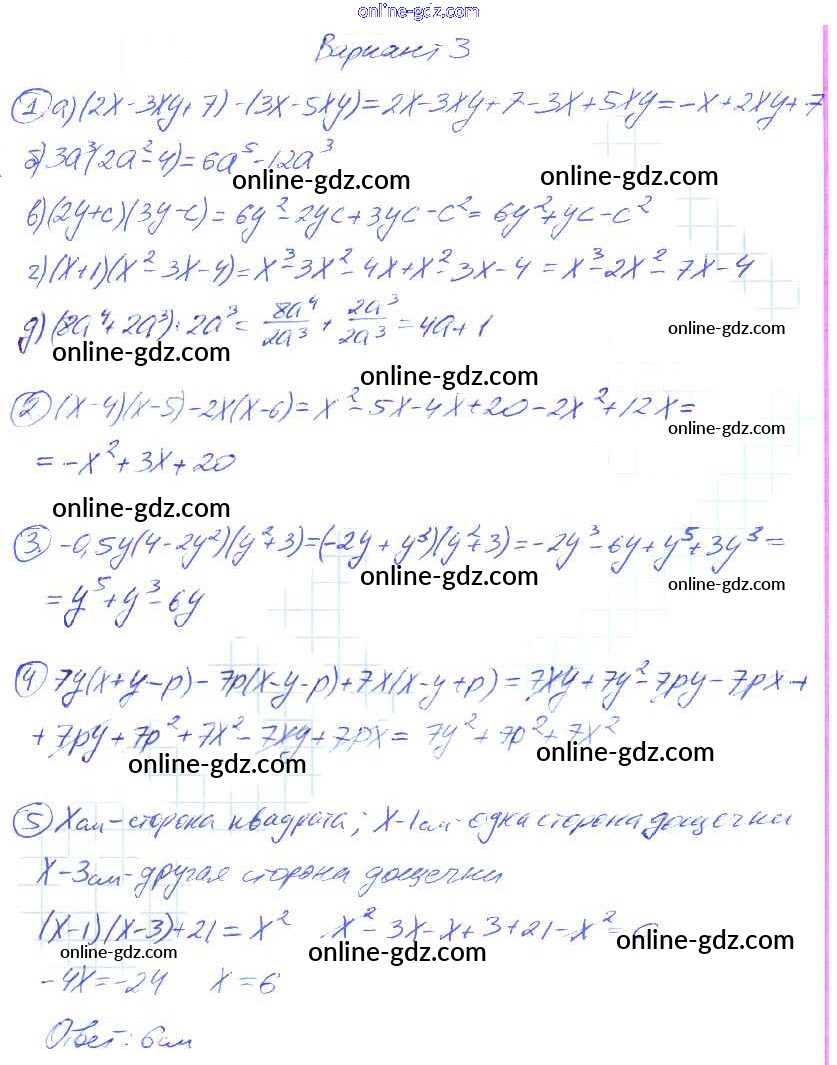 online-gdz.com
Вариант 3
① а) (2x - 3xy + 7) - (3x - 5xy) = 2x - 3xy + 7 - 3x + 5xy = -x + 2xy + 7
б) 3a³(2a² - 4) = 6a⁵ - 12a³
online-gdz.com online-gdz.com
в) (2y + c)(3y - c) = 6y² - 2yc + 3yc - c² = 6y² + yc - c²
г) (x + 1)(x² - 3x - 4) = x³ - 3x² - 4x + x² - 3x - 4 = x³ - 2x² - 7x - 4
д) (8a⁴ + 2a³) : 2a³ = 8a⁴/2a³ + 2a³/2a³ = 4a + 1
online-gdz.com
online-gdz.com
online-gdz.com
② (x - 4)(x - 5) - 2x(x - 6) = x² - 5x - 4x + 20 - 2x² + 12x =
online-gdz.com
= -x² + 3x + 20
online-gdz.com
③ -0,5y(4 - 2y²)(y² + 3) = (-2y + y³)(y² + 3) = -2y³ - 6y + y⁵ + 3y³ =
online-gdz.com
online-gdz.com
= y⁵ + y³ - 6y
④ 7y(x + y - p) - 7p(x - y - p) + 7x(x - y + p) = 7xy + 7y² - 7py - 7px +
+ 7py + 7p² + 7x² - 7xy + 7px = 7y² + 7p² + 7x²
online-gdz.com online-gdz.com
⑤ x см - сторона квадрата; x - 1 см - одна сторона дощечки
x - 3 см - другая сторона дощечки
(x - 1)(x - 3) + 21 = x² x² - 3x - x + 3 + 21 - x² =
online-gdz.com online-gdz.com online-gdz.com
-4x = -24 x = 6
Ответ: 6 см